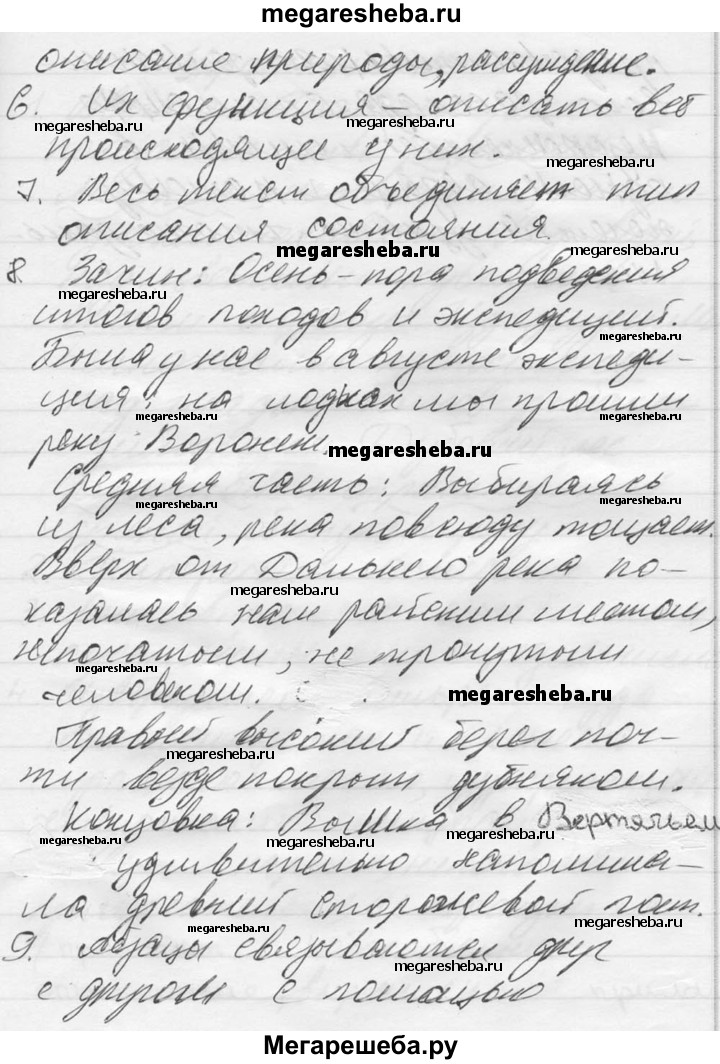 megaresheba.ru
описание природы, рассуждение.
6. Их функция – описать всё
megaresheba.ru megaresheba.ru
происходящее у них.
megaresheba.ru
7. Весь текст объединяет тип
megaresheba.ru
описания состояния.
megaresheba.ru megaresheba.ru
8. Зачин: Осень – пора подведения
megaresheba.ru
итогов походов и экспедиций.
megaresheba.ru
Была у нас в августе экспеди-
megaresheba.ru
ция: на лодках мы прошли
megaresheba.ru megaresheba.ru
реку Воронеж.
megaresheba.ru
Средняя часть: Выбираясь
megaresheba.ru
из леса, река повсюду тощает.
megaresheba.ru
Вверх от Дальнего река по-
megaresheba.ru
казалась нам райским местом,
megaresheba.ru
непочатым, не тронутым
megaresheba.ru
человеком.
megaresheba.ru
Правый высокий берег поч-
megaresheba.ru
ти везде покрыт дубняком.
megaresheba.ru
Концовка: Вышка в Вертячьем
megaresheba.ru megaresheba.ru
удивительно напомина-
megaresheba.ru
ла древний сторожевой пост.
megaresheba.ru megaresheba.ru
9. Абзацы связываются друг
megaresheba.ru
с другом с помощью
Мегарешеба.ру